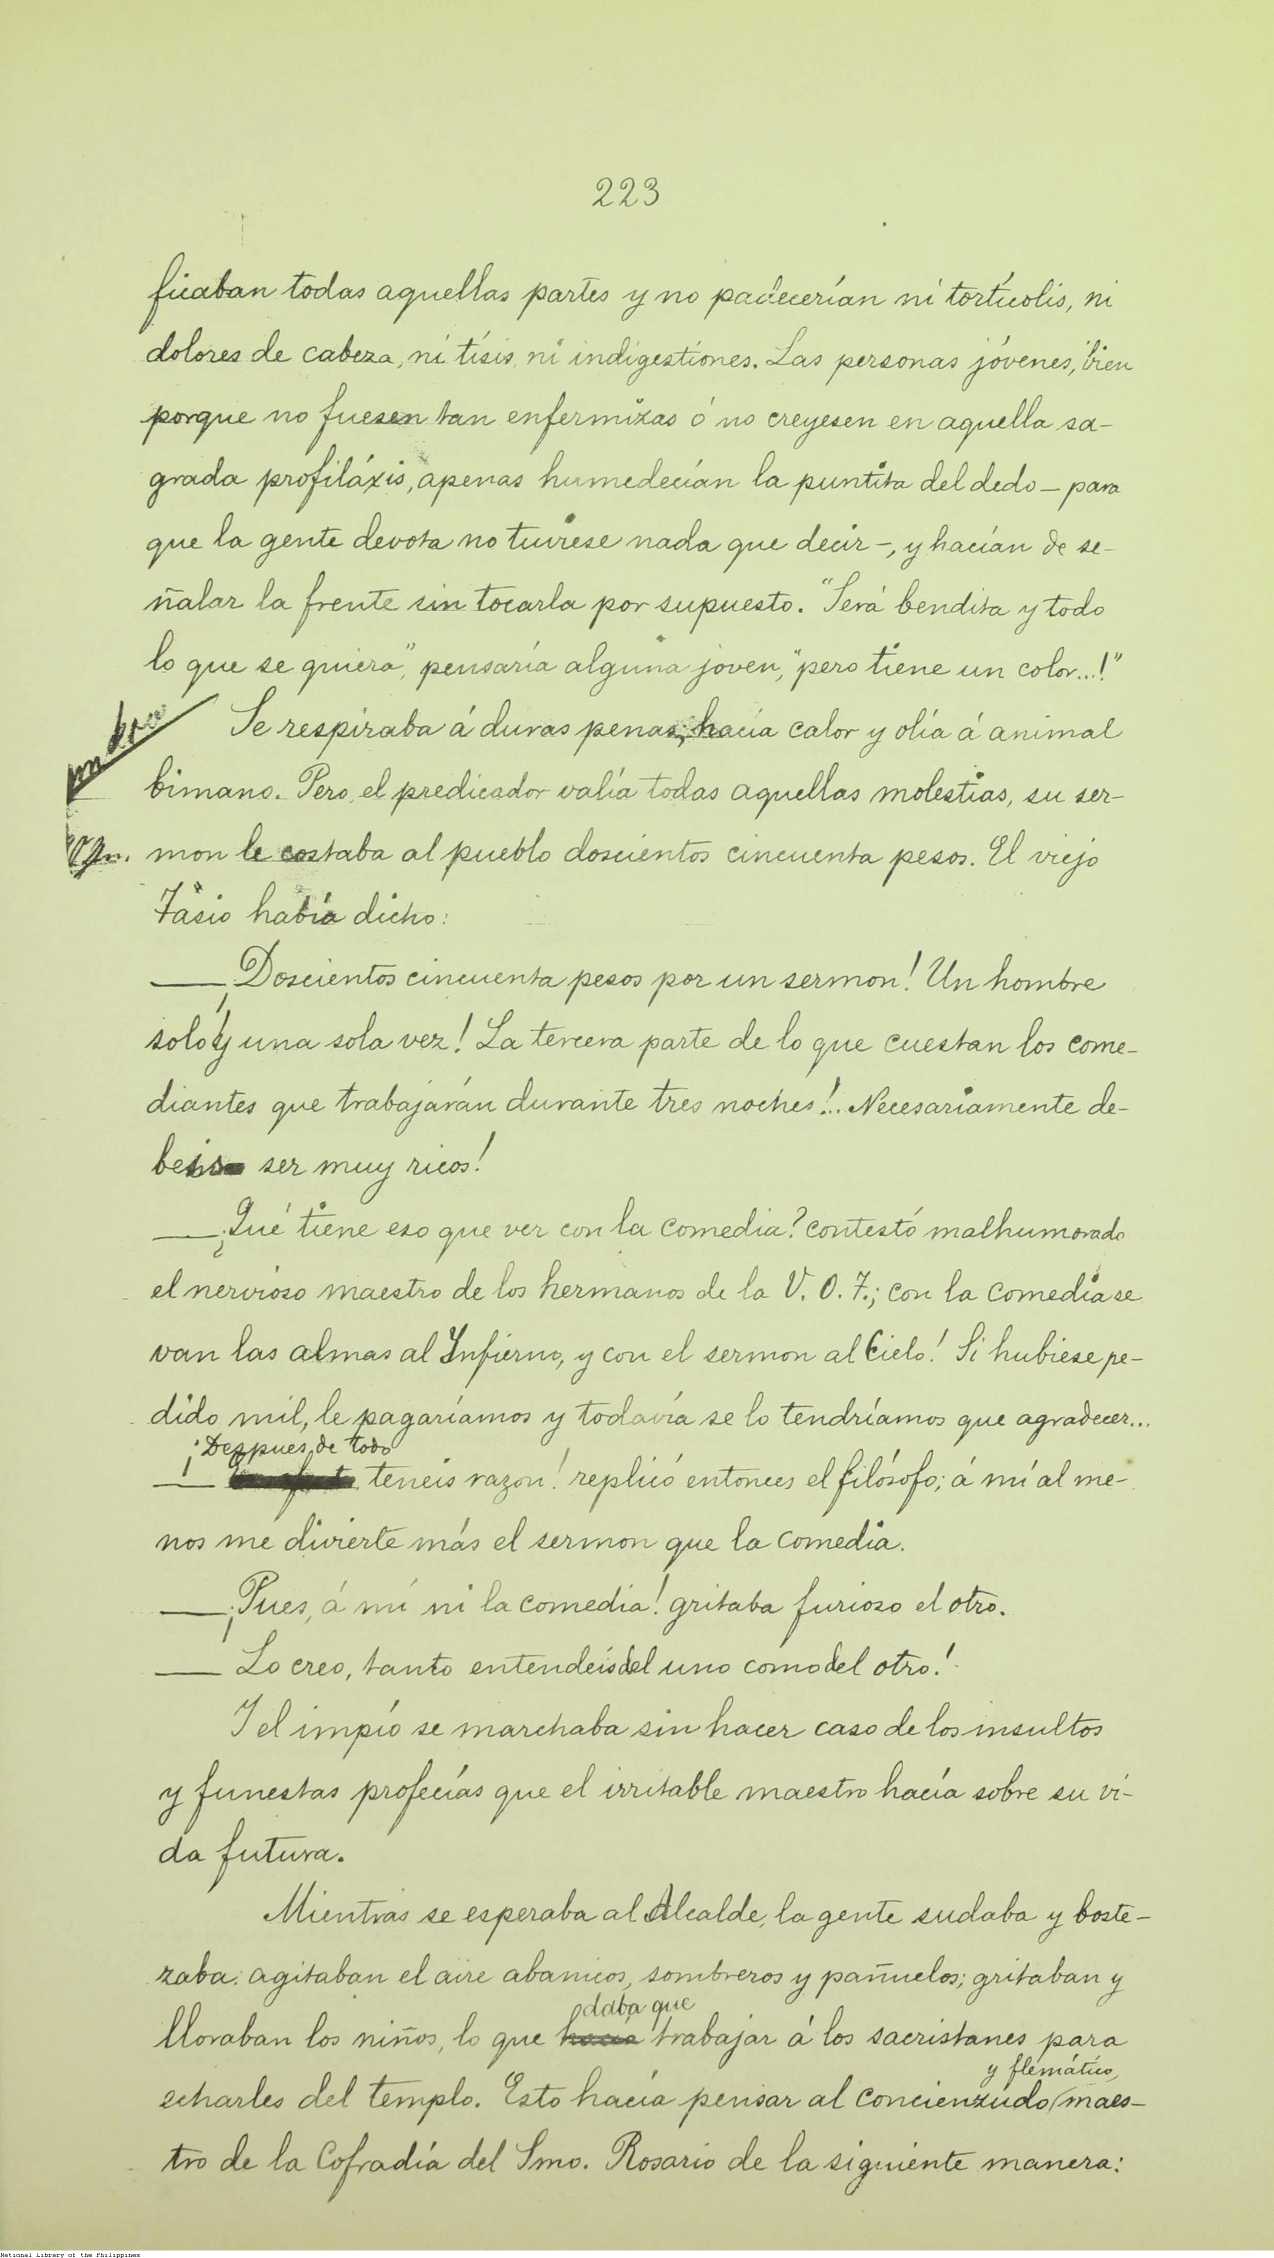 223
ficaban todas aquellas partes y no padecerían ni tortícolis, ni
dolores de cabeza, ni tísis, ni indigestiones. Las personas jóvenes, bien
porque no fuesen tan enfermizas ó no creyesen en aquella sa-
grada profiláxis, apenas humedecían la puntita del dedo — para
que la gente devota no tuviese nada que decir —, y hacían de se-
ñalar la frente sin tocarla por supuesto. "Será bendita y todo
lo que se quiera", pensaría alguna joven, "pero tiene un color...!"
Se respiraba á duras penas; hacía calor y olía á animal
bimano. Pero el predicador valía todas aquellas molestias, su ser-
mon le costaba al pueblo doscientos cincuenta pesos. El viejo
Tasio había dicho:
— ¡Doscientos cincuenta pesos por un sermon! Un hombre
solo y una sola vez! La tercera parte de lo que cuestan los come-
diantes que trabajarán durante tres noches!... Necesariamente de-
beis ser muy ricos!
— ¿Qué tiene eso que ver con la comedia? contestó malhumorado
el nervioso maestro de los hermanos de la V. O. T.; con la comedia se
van las almas al Infierno, y con el sermon al Cielo! Si hubiese pe-
dido mil, le pagaríamos y todavía se lo tendríamos que agradecer...
— ¡Despues de todo teneis razon! replicó entonces el filósofo; á mí al me-
nos me divierte más el sermon que la comedia.
— ¡Pues, á mí ni la comedia! gritaba furioso el otro.
— Lo creo, tanto entendeis del uno como del otro!
Y el impío se marchaba sin hacer caso de los insultos
y funestas profecías que el irritable maestro hacía sobre su vi-
da futura.
Mientras se esperaba al Alcalde, la gente sudaba y boste-
zaba: agitaban el aire abanicos, sombreros y pañuelos; gritaban y
lloraban los niños, lo que daba que trabajar á los sacristanes para
echarles del templo. Esto hacía pensar al concienzudo y flemático maes-
tro de la Cofradía del Smo. Rosario de la siguiente manera:
National Library of the Philippines